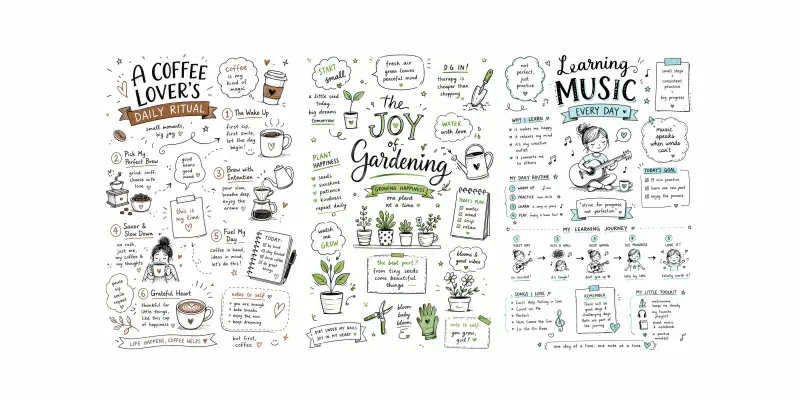 A COFFEE
LOVER'S
DAILY RITUAL
small moments,
big joy
Coffee
is my
kind of
magic
1 The Wake Up
First sip,
first smile,
let the day
begin!
2 Pick My
Perfect Brew
grind, sniff,
choose with
love
good
beans
good
mood
3 Brew with
Intention
pour slow,
breathe deep,
enjoy the
aroma
this is
my time
4 Savor &
Slow Down
no rush,
just me,
my coffee &
my thoughts
5 Fuel My
Day
coffee in hand,
ideas in mind,
let's do this!
TODAY:
be kind
stay focused
drink water
do great
things
pause
sip
smile
repeat
6 Grateful Heart
thankful for
little things,
like this cup
of happiness
notes to self
you are enough
take breaks
enjoy the now
keep dreaming
LIFE HAPPENS, COFFEE HELPS
but first,
coffee
START
small
a little seed
today...
big dreams
tomorrow
fresh air
green leaves
peaceful mind
DIG IN!
therapy is
cheaper than
shopping
the
JOY
of
Gardening
GROWING HAPPINESS
one plant
at a time
WATER
with love
PLANT
HAPPINESS
seeds
sunshine
patience
kindness
repeat daily
TODAY'S
PLAN:
water
weed
snip
relax
watch
me
GROW
the best part?
from tiny seeds
come beautiful
things
blooms &
good vibes
DIRT UNDER MY NAILS
JOY IN MY HEART
bloom
baby
bloom
note to self:
you grow,
girl!
not
perfect,
just
practice
Learning
MUSIC
EVERY DAY
small steps
+
consistent
practice
=
big progress
WHY I LEARN
it makes me happy
it's my creative
outlet
it relaxes my mind
it connects me
to others
music
speaks
when words
can't
MY DAILY ROUTINE
1 WARM UP
2 PRACTICE
3 LEARN
4 PLAY
strive for progress,
not perfection
TODAY'S GOAL
15 min practice
learn one new part
enjoy the process
MY LEARNING JOURNEY
1
FIRST DAY
so excited!
2
HITS A WALL
it's tough!
3
KEEP GOING
don't give up
4
SEE PROGRESS
little by little
5
LOVE IT!
totally worth it!
SONGS I LOVE
Can't Help Falling in Love
Count on Me
Perfect
Here Comes the Sun
La Vie En Rose
REMEMBER
There will be
good days &
challenging days.
Both are part
of the journey
MY LITTLE TOOLKIT
metronome
keeps me steady
my favorite
playlist
sheet music
& notebook
a positive
mindset
one day at a time, one note at a time